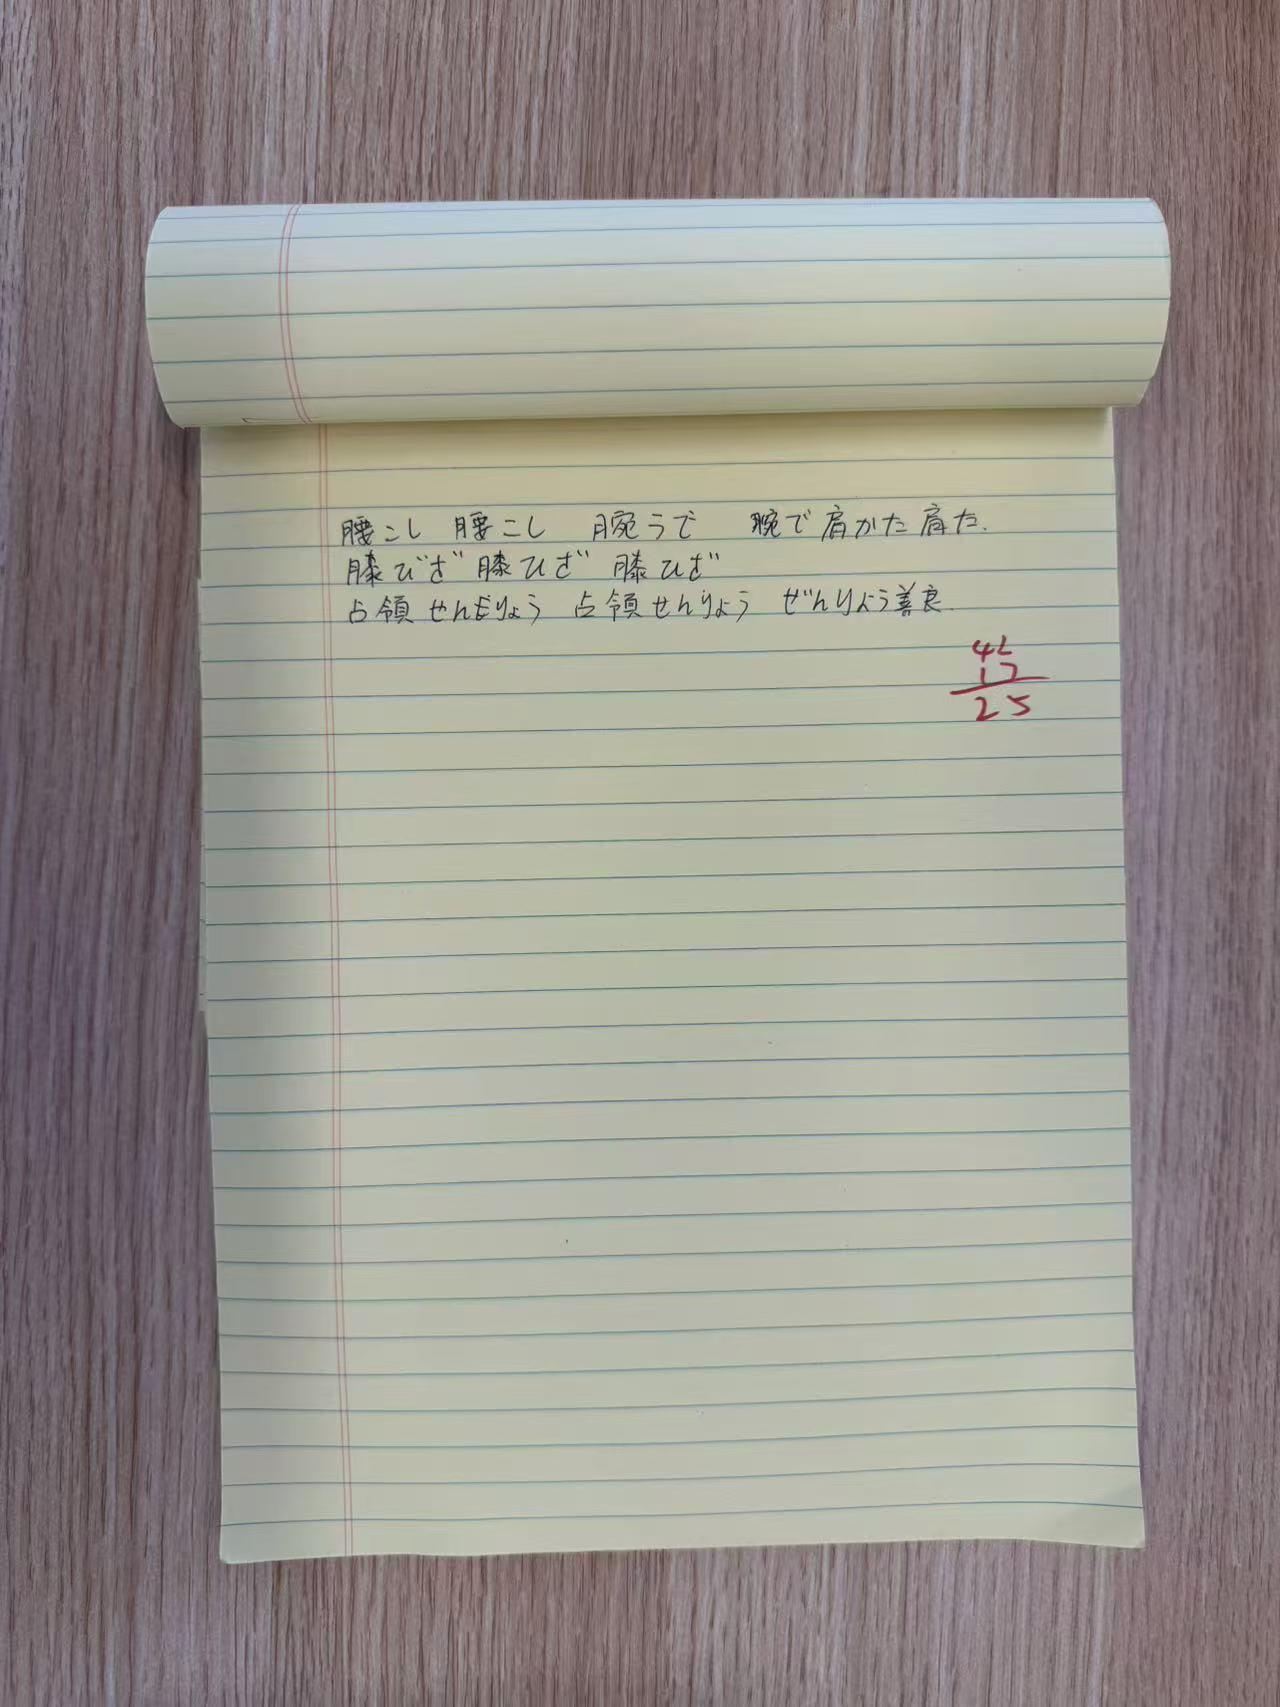 腰こし 腰こし 腕うで 腕で肩かた肩た.
膝びざ 膝ひざ 膝ひざ
占領せんりょう 占領せんりょう ぜんりょう善良.
42
17
25